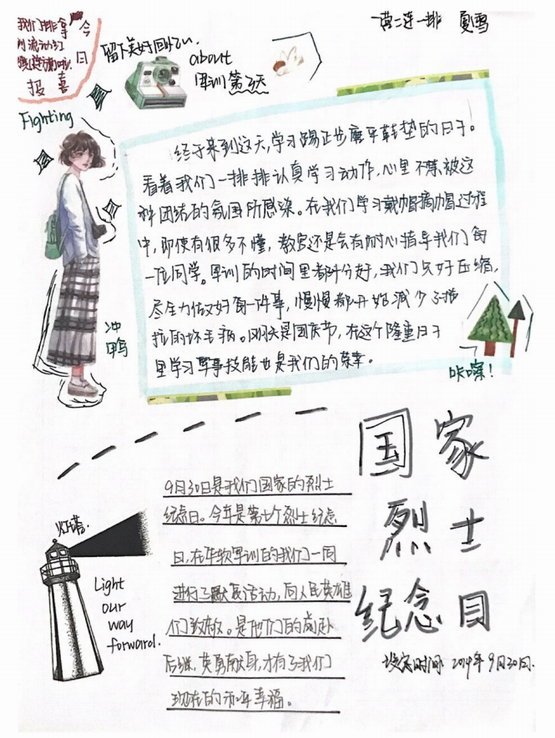 营二连一排 夏雪
我们排拿
今日
报喜
留下美好回忆
about
军训第3天
Fighting
终于来到这天,学习踢正步磨平鞋垫的日子。
看着我们一排排认真学习动作,心里不禁被这
种团结的氛围所感染。在我们学习戴帽摘帽过程
中,即使有很多不懂,教官还是会有耐心指导我们每
一位同学。军训的时间里都时分好,我们只好压缩,
尽全力做好每一件事,慢慢都开始减少了拖
拉的坏毛病。刚好是国庆节,在这个隆重日子
里学习军事技能也是我们的荣幸。
冲鸭
咔嚓!
国家
烈士
纪念日
设定时间 2014年9月30日.
9月30日是我们国家的烈士
纪念日。今年是第七个烈士纪念
日,在军训的我们一同
进行了默哀活动,向人民英雄
们致敬。是他们的前赴
后继,英勇献身,才有了我们
现在的和平幸福。
灯塔.
Light
our
way
forward.